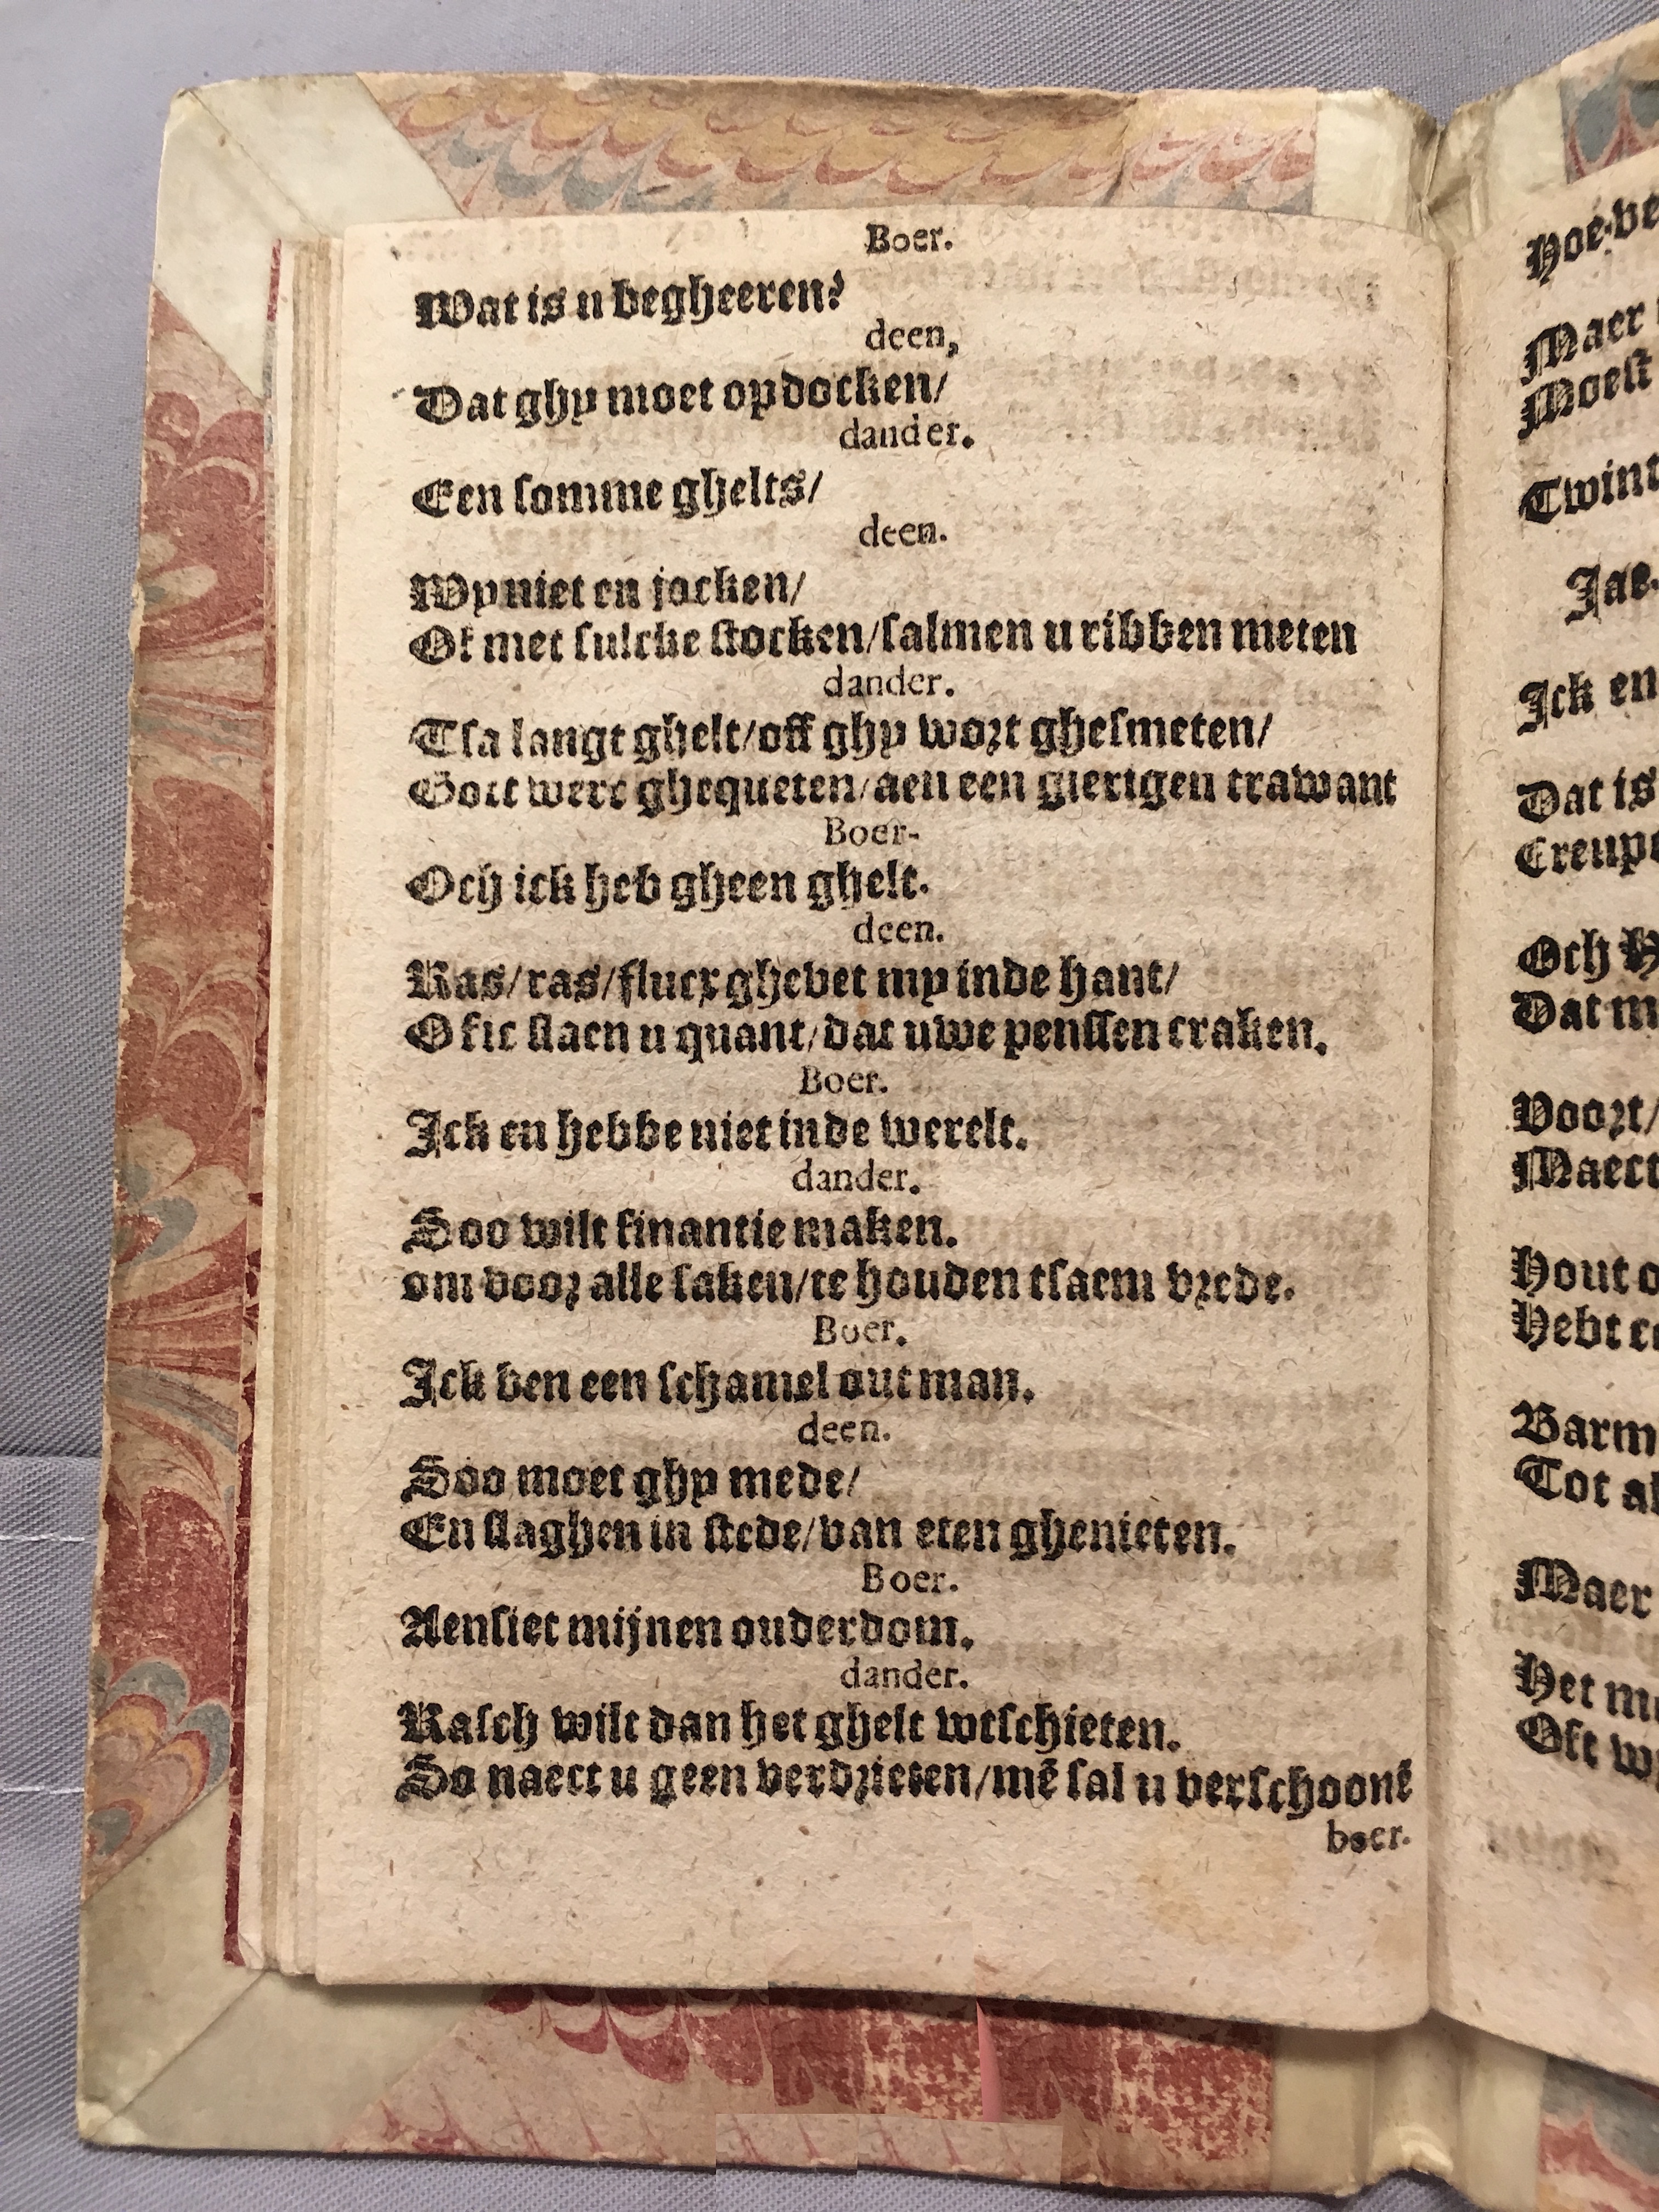 Boer.
Wat is u begheeren?
deen,
Dat ghy moet opdocken/
dander.
Een somme ghelts/
deen.
Wy niet en jocken/
Of met sulcke stocken/salmen u ribben meten
dander.
Tsa langt ghelt/off ghy wort ghesmeten/
were ghequeten/aen een gierigen trawant
Boer-
Och ick heb gheen ghelt.
deen.
Ras/ras/flucx ghevet my inde hant/
Ofte slaen u quant/dat uwe penssen craken.
Boer.
Ick en hebbe niet inde werelt.
dander.
Soo wilt finantie maken.
om voor alle saken/te houden tsaem vrede.
Boer.
Ick ben een schamel out man.
deen.
Soo moet ghy mede/
En slaghen in stede/van eten ghenieten.
Boer.
Aensiet mijnen ouderdom.
dander.
Rasch wilt dan het ghelt wtschieten.
So naect u geen verdrieten/mē sal u verschoonē
boer.
Maer
Moest
Ick en
Dat is
Och
Voort/
Maect
Hout
Hebt
Tot
Maer
Het
Oft